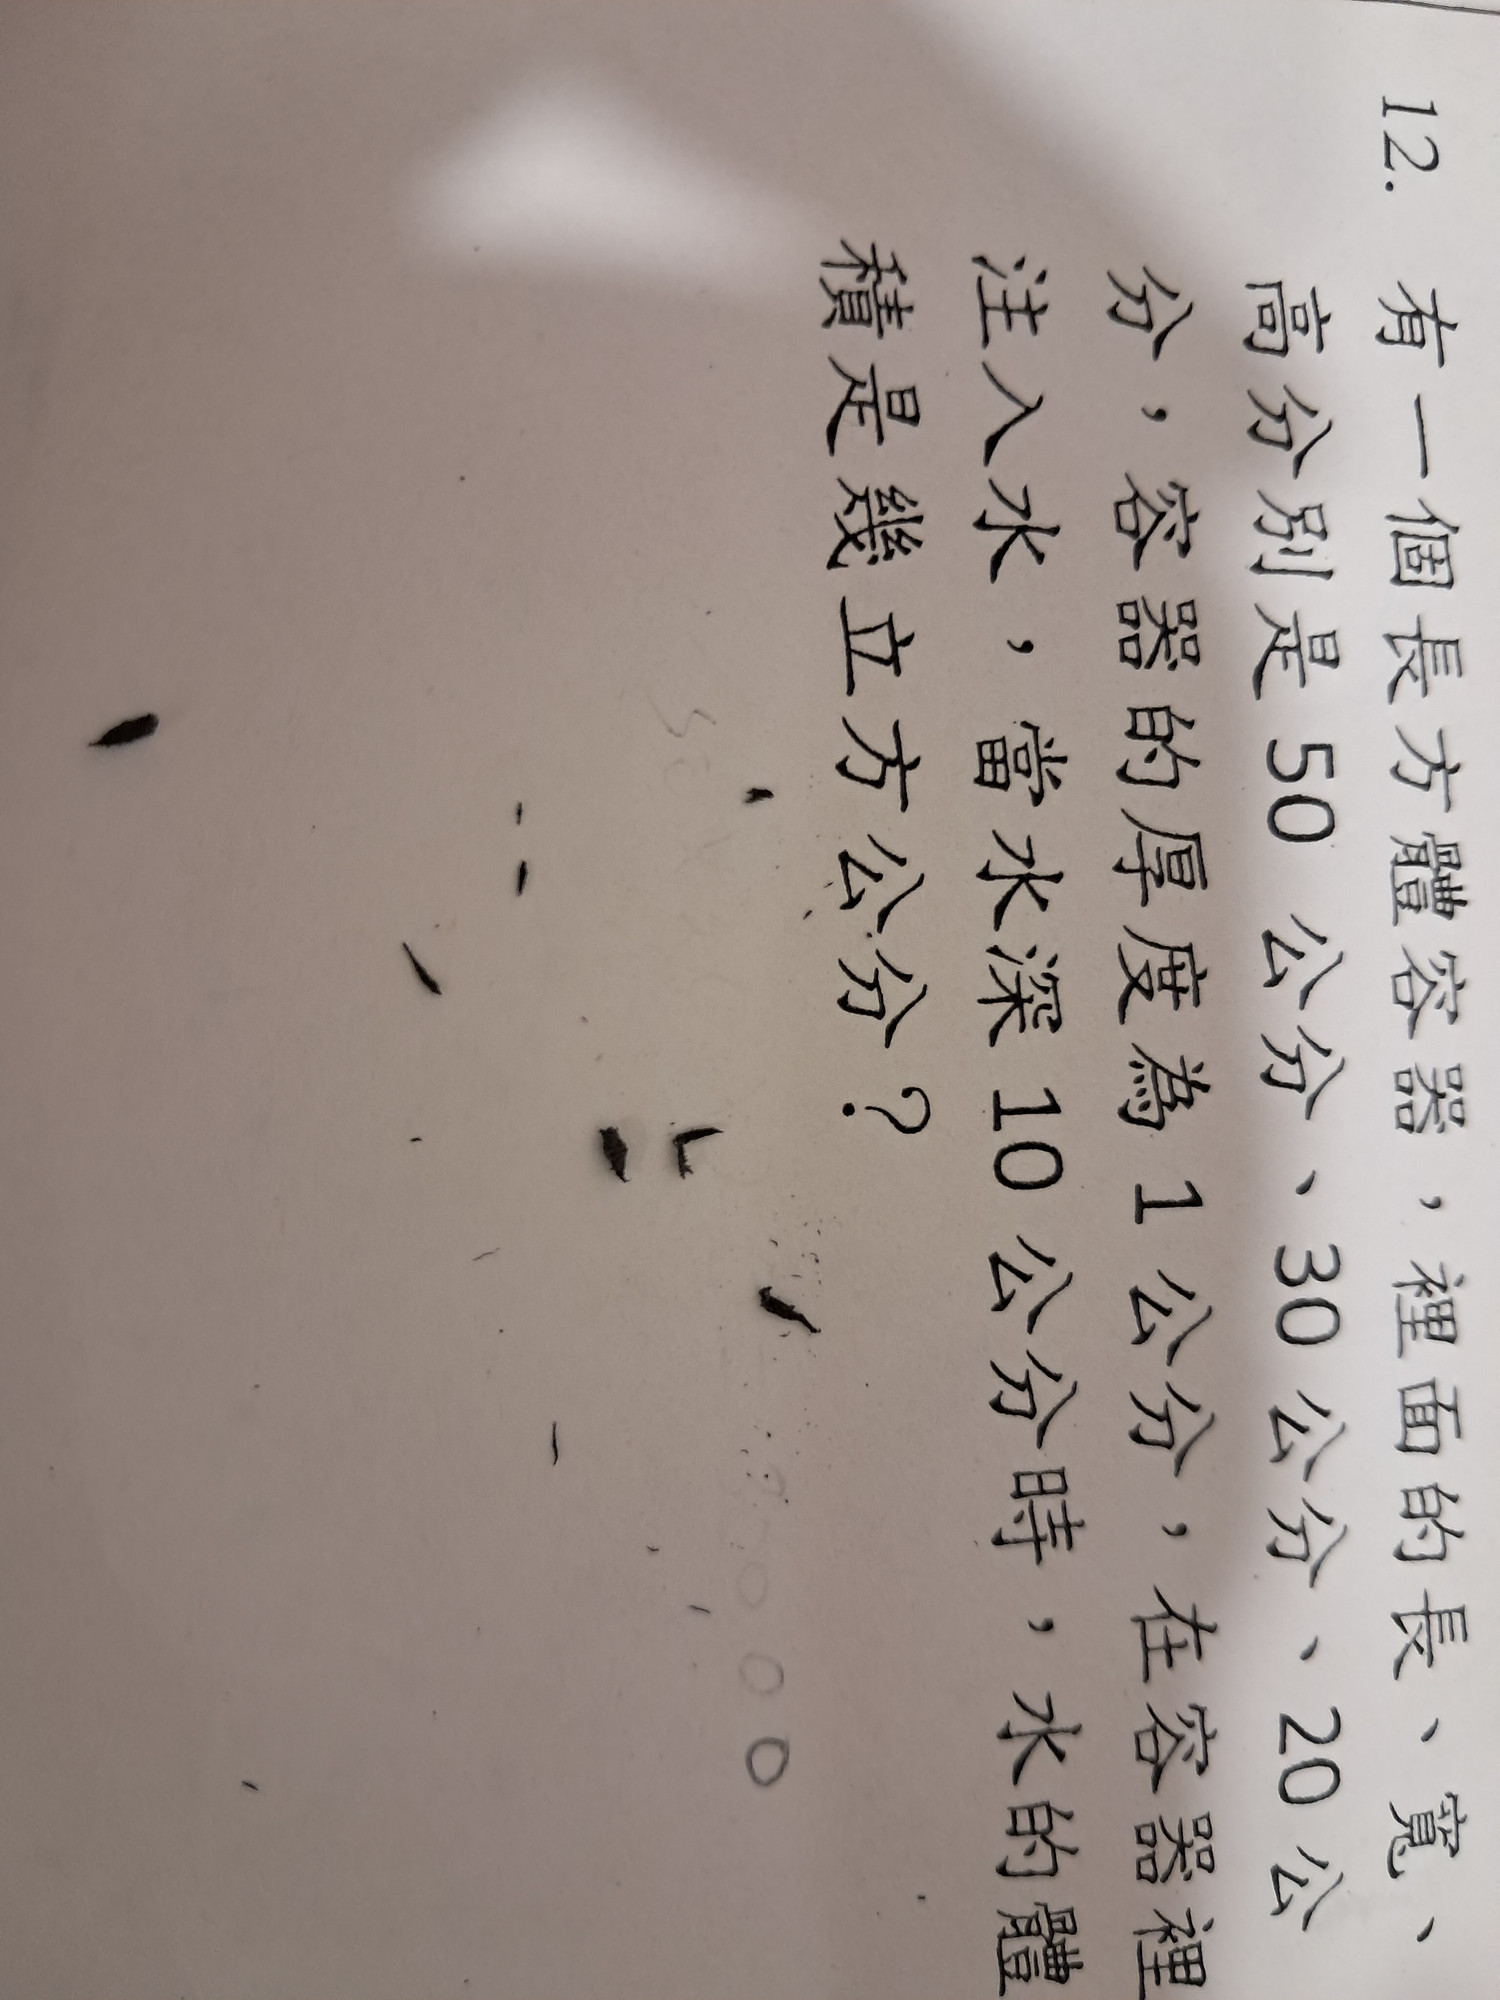 12. 有一個長方體容器，裡面的長、寬、
高分別是 50 公分、30 公分、20 公
分，容器的厚度為 1 公分，在容器裡
注入水，當水深 10 公分時，水的體
積是幾立方公分？